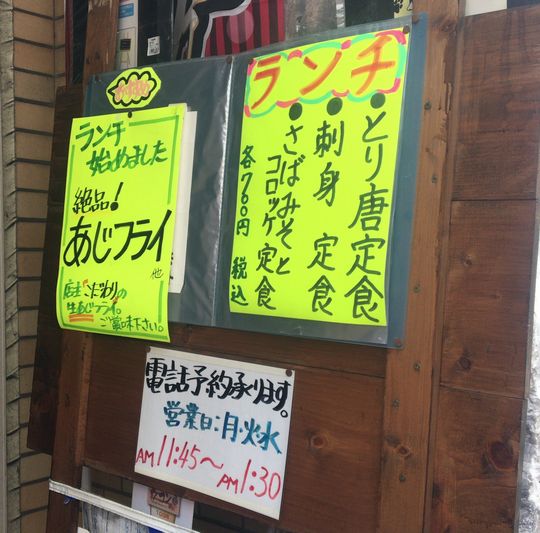 おすすめ
ランチ
始めました
絶品!
あじフライ
他
店主こだわりの
生あじフライ。
ご賞味下さい。
ランチ
●とり唐定食
●刺身 定食
●さばみそと
コロッケ定食
各700円 税込
電話予約承ります。
営業日:月・火・水
AM11:45〜PM1:30